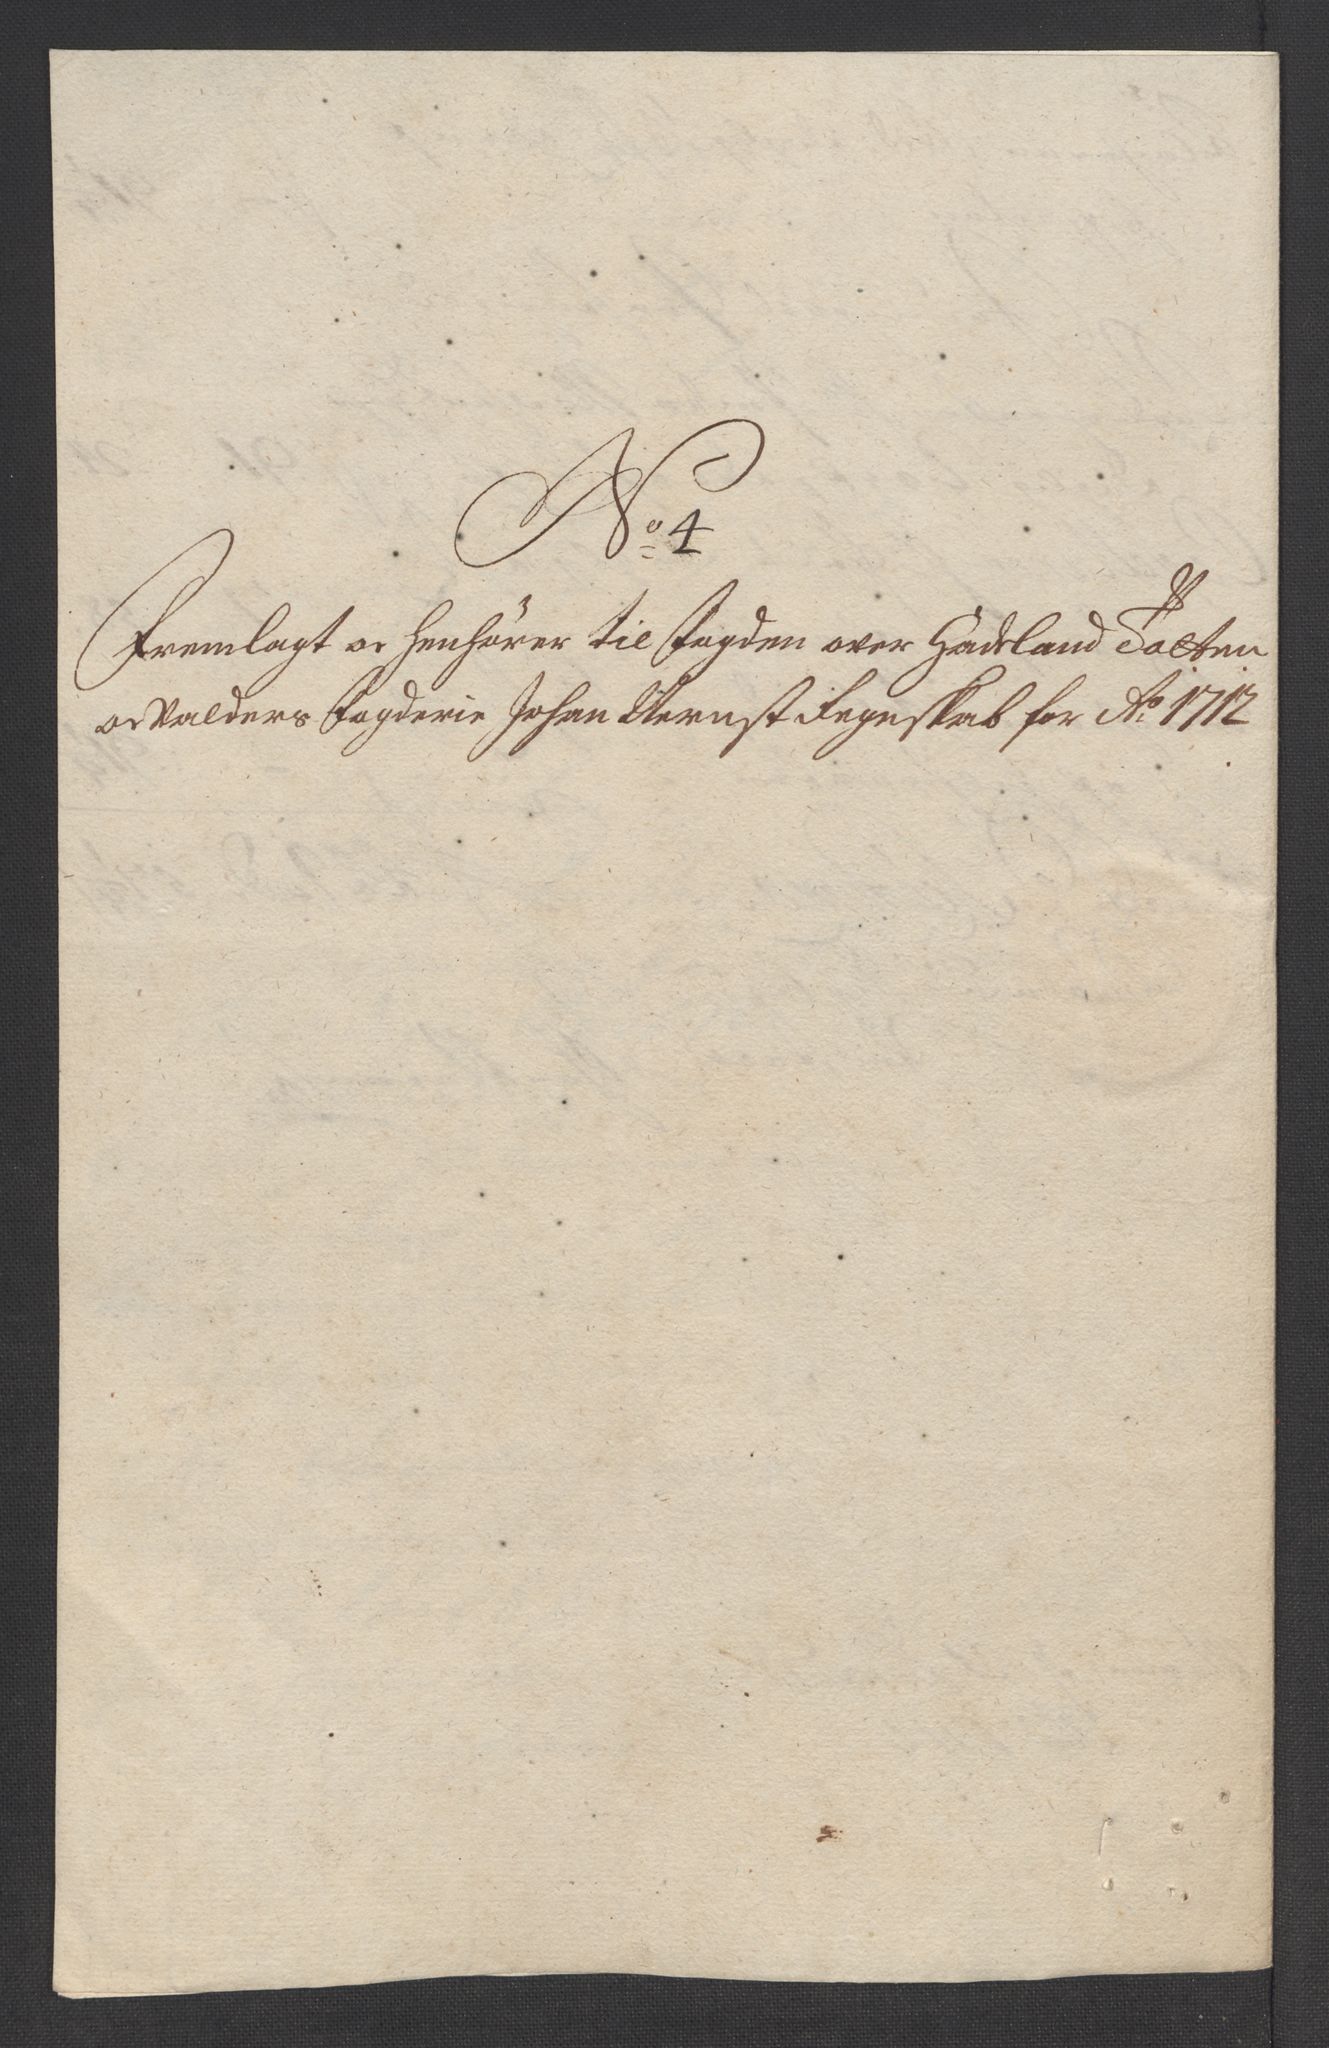 No 4
Fremlagt oc henhörer til fogden over Hadeland Totten
oc Valders fogderie Johan Ernst Regenskab for Ao 1712